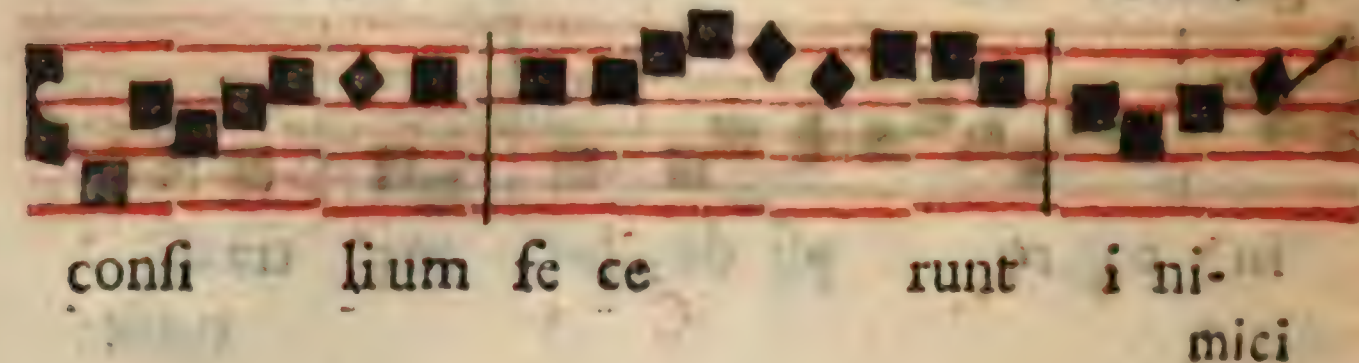 conſi lium fe ce runt i ni-
mici